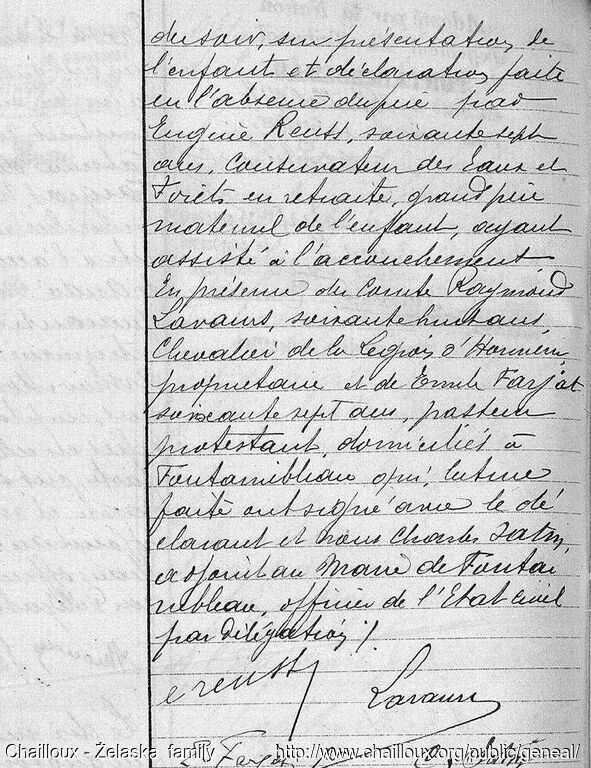 du soir, sur présentation de
l'enfant et déclaration faite
en l'absence du père par
Eugène Reuss, soixante sept
ans, Conservateur des Eaux et
Forêts en retraite, grand père
maternel de l'enfant, ayant
assisté à l'accouchement
En présence du Comte Raymond
Lavaurs, soixante huit ans,
Chevalier de la Légion d'Honneur,
propriétaire et de Emile Farjat
soixante sept ans, pasteur
protestant, domiciliés à
Fontainebleau qui, lecture
faite ont signé avec le dé
clarant et nous Charles
adjoint au Maire de Fontai
nebleau, officier de l'Etat Civil
par délégation ./.
e reuss
Lavaurs
E Farjat
Chailloux - Żelaska family http://www.chailloux.org/public/geneal/